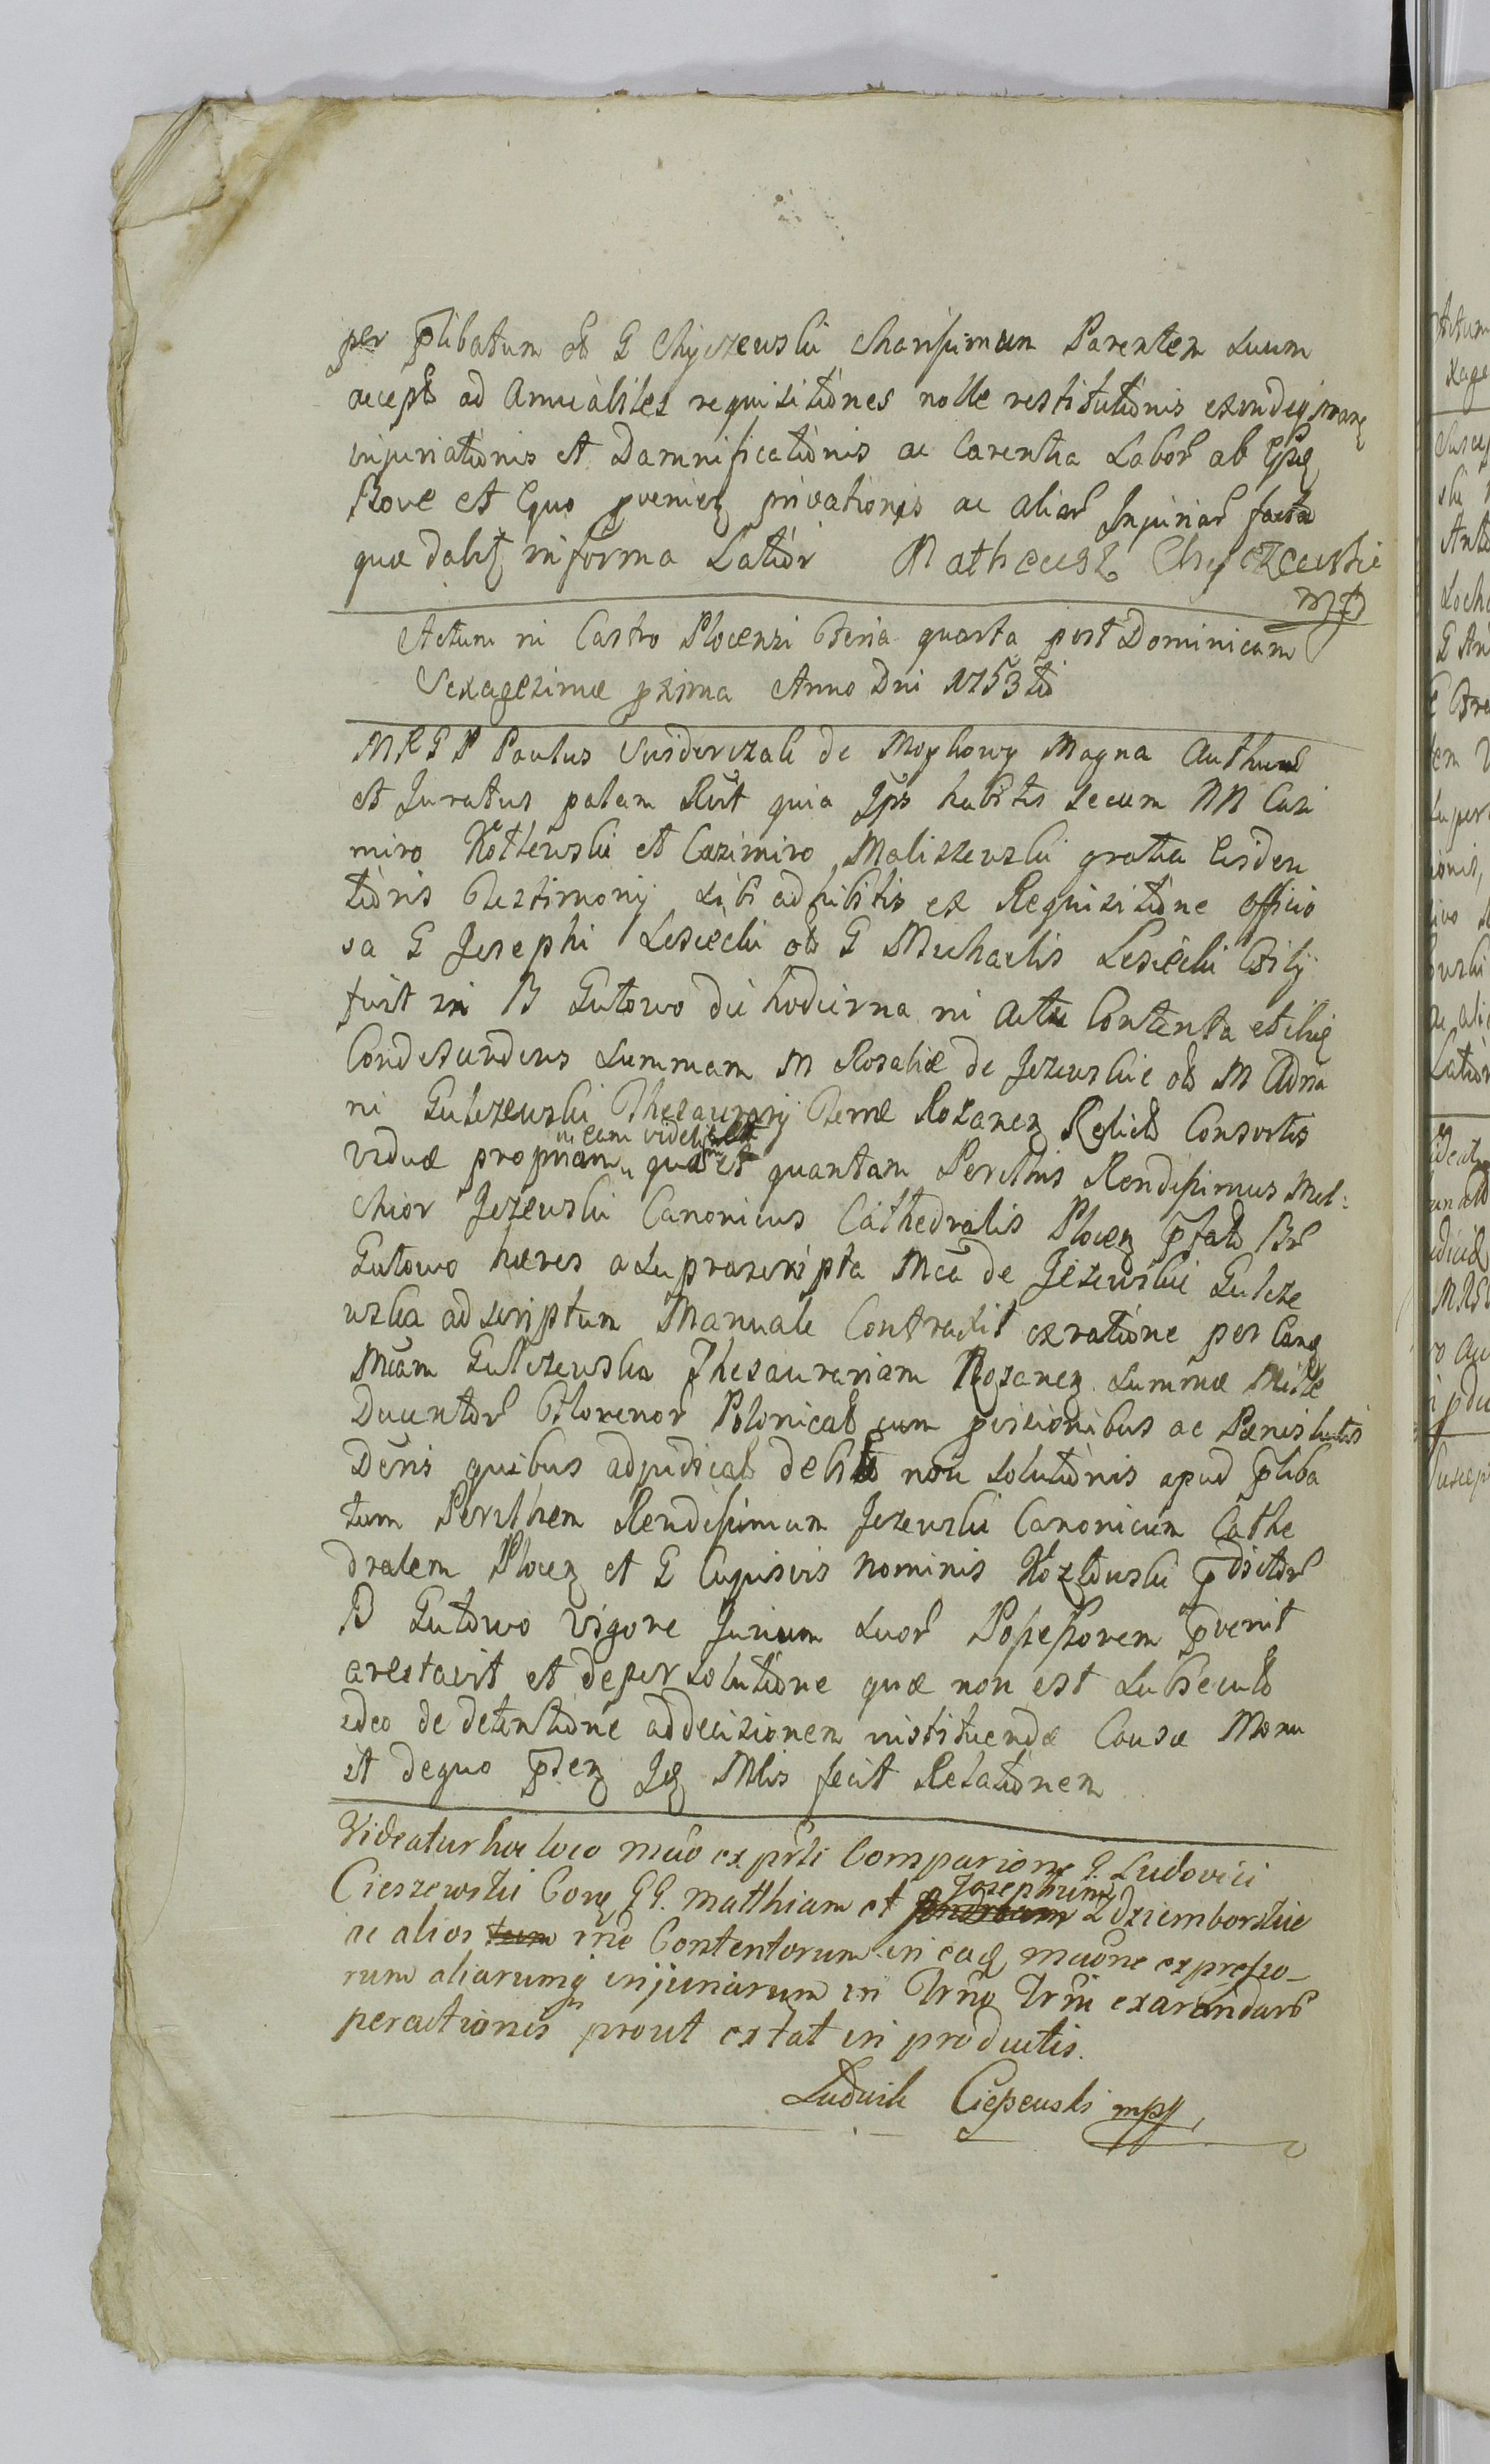 per p̄libatum olt G Chyczewski Charissimum Parentem Suum
accept ad Amicabiles requisitiones nolle restitutionis exinde
injuriationis et Damnificationis ac Carentia Labor ab
Bove et Equo privationis ac aliar Injuriar facta
quæ in forma Latior Matheusz Chyczewski
mp
Actum in Castro Plocensi Feria quarta post Dominicam
Sexagesimæ proxima Anno Dni 1753tio
MRGD Paulus de Moglowy Magna Authent
et Juratus palam Rōt quia Ips habitis secum NN Casi
miro Kotlewski et Casimiro Maliszewski gratia Eviden
tionis Testimonij sibi adhibitis ex Requisitione officio
sa G Josephi Lesiecki olt G Michaelis Lesiecki Filij
fuit in B Gutowo die hodierna in actu Contenta et
Condescendens Summam M Rosaliæ de Jezewskie olt M Ada
ni Gulczewski Thesaurarij Terræ Rozanen Relict Consortis
in eam videlicet
viduæ propriam quam et quantam Perillris Rendissimus Mel-
chior Jezewski Canonicus Cathedralis Plocen p̄fat Br
Gutowo hæres a supra scripta Mca de Jezewskie Gulcze
wska ad scriptum Manuale Contraxit ex ratione per Eand
Mcam Gulczewska Thesaurariam Rozanen Summæ Mille
Ducentor Florenor Polonical cum provisionibus ac Pænis luitis
Decris quibus adjudicat debito non solutionis apud p̄liba
tum Perillrem Rendissimum Jezewski Canonicum Cathe
dralem Plocen et G Cujusvis Nominis Kozlowski p̄dictor
B Gutowo vigore Jurium Suor Possessorem p̄venit
arestavit et de per solutione quæ non est Subsecuta
ideo de detentione ad decisionem instituendæ Causæ Monu
it de quo p̄den Mlis fecit Relationem
Videatur hoc loco mcio ex prte Comparione G Ludovici
Josephum
Cieszewski Cora GG. Matthiam et Andream Dziemborskie
ac alios ind Contentorum in eadq mcione expresso-
rum aliarumq injuriarum in Trno Trni exarandar
peractionis prout extat in productis.
Ludwik Cieszewski mpp